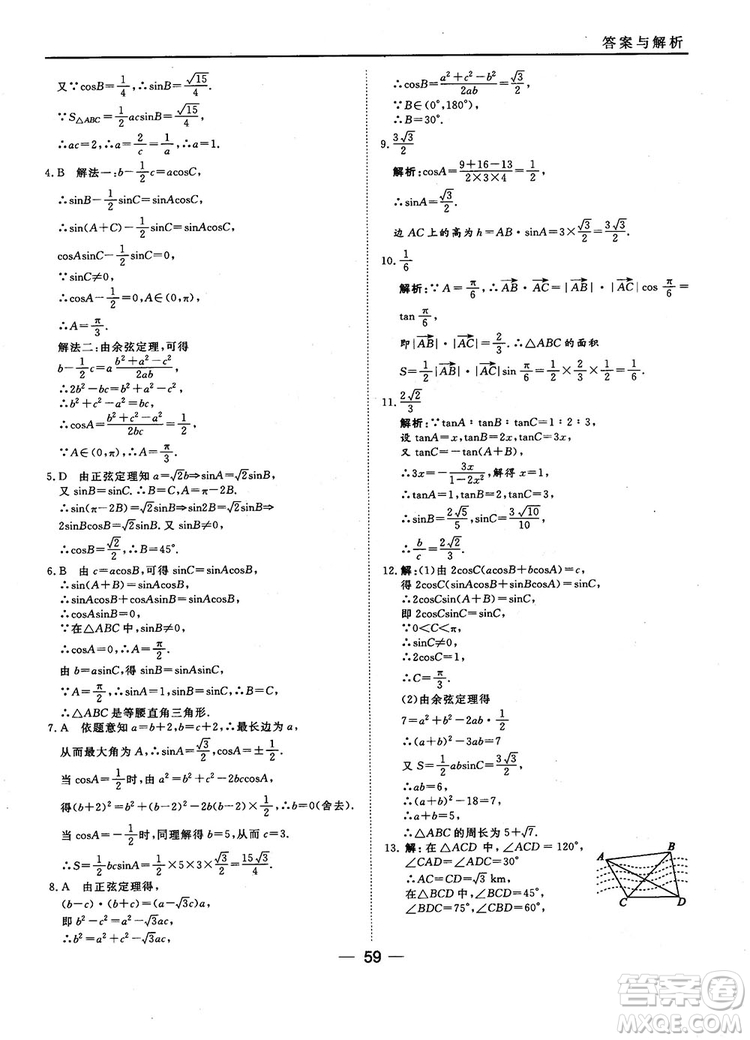 答案与解析
又∵cosB=1/4,∴sinB=√15/4.
∵S△ABC=1/2acsinB=√15/4,
∴ac=2,∴a=2/c=2/a,∴a=1.
4. B 解法一:b-1/2c=acosC,
∴sinB-1/2sinC=sinAcosC,
∴sin(A+C)-1/2sinC=sinAcosC,
cosAsinC-1/2sinC=0,
∵sinC≠0,
∴cosA-1/2=0,A∈(0,π),
∴A=π/3.
解法二:由余弦定理,可得
b-1/2c=a b²+a²-c²/2ab,
∴2b²-bc=b²+a²-c²,
∴b²+c²-a²=bc,
∴cosA=b²+c²-a²/2bc=1/2,
∵A∈(0,π),∴A=π/3.
5. D 由正弦定理知 a=√2b⇒sinA=√2sinB,
又 sinB=sinC,∴B=C,∴A=π-2B,
∴sin(π-2B)=√2sinB⇒sin2B=√2sinB⇒
2sinBcosB=√2sinB,又 sinB≠0,
∴cosB=√2/2,∴B=45°.
6. B 由 c=acosB,可得 sinC=sinAcosB,
∴sin(A+B)=sinAcosB,
∴sinAcosB+cosAsinB=sinAcosB,
∴cosAsinB=0,
∵在△ABC中,sinB≠0,
∴cosA=0,∴A=π/2.
由 b=asinC,得 sinB=sinAsinC,
∵A=π/2,∴sinB=sinC,∴B=C,
∴△ABC是等腰直角三角形.
7. A 依题意知 a=b+2,b=c+2,∴最长边为 a,
从而最大角为 A,∴sinA=√3/2,cosA=±1/2.
当 cosA=1/2时,由 a²=b²+c²-2bccosA,
得(b+2)²=b²+(b-2)²-2b(b-2)×1/2,∴b=0(舍去).
当 cosA=-1/2时,同理解得 b=5,从而 c=3.
∴S=1/2bcsinA=1/2×5×3×√3/2=15√3/4.
8. A 由正弦定理得,
(b-c)·(b+c)=(a-√3c)·a,
即 b²-c²=a²-√3ac,
∴b²=a²+c²-√3ac,
∴cosB=a²+c²-b²/2ab=√3/2.
∵B∈(0°,180°),
∴B=30°.
9. 3√3/2
解析:cosA=9+16-13/2×3×4=1/2,
∴sinA=√3/2.
边 AC 上的高为 h=AB·sinA=3×√3/2=3√3/2.
10. 1/6
解析:∵A=π/6,∴AB·AC=|AB|·|AC|cos π/6=
tan π/6,
即|AB|·|AC|=2/3.∴△ABC的面积
S=1/2|AB|·|AC|sin π/6=1/2×2/3×1/2=1/6.
11. 2√2/3
解析:∵tanA∶tanB∶tanC=1∶2∶3,
设 tanA=x,tanB=2x,tanC=3x,
又 tanC=-tan(A+B),
∴3x=-3x/1-2x²,解得 x=1,
∴tanA=1,tanB=2,tanC=3,
∴sinB=2√5/5,sinC=3√10/10,
∴b/c=2√2/3.
12. 解:(1)由 2cosC(acosB+bcosA)=c,
得 2cosC(sinAcosB+sinBcosA)=sinC,
∴2cosCsin(A+B)=sinC,
即 2cosCsinC=sinC.
∵0<C<π,
∴sinC≠0,
∴2cosC=1,
∴C=π/3.
(2)由余弦定理得
7=a²+b²-2ab·1/2,
∴(a+b)²-3ab=7
又 S=1/2absinC=3√3/2,
∴ab=6,
∴a+b=5,
∴△ABC的周长为5+√7.
13. 解:在△ACD中,∠ACD=120°,
∠CAD=∠ADC=30°,
∴AC=CD=√3 km,
在△BCD中,∠BCD=45°,
∠BDC=75°,∠CBD=60°,
A
B
C
D
59
答案圈
MXQE.COM